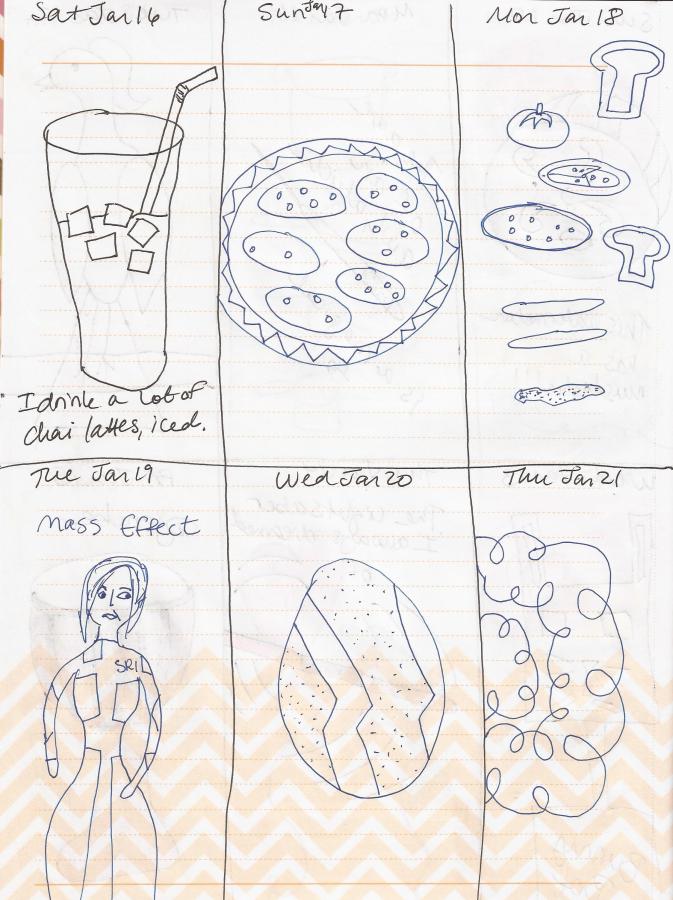 Sat Jan 16
Sun Jan 17
Mon Jan 18
I drink a lot of
chai lattes, iced.
Tue Jan 19
Wed Jan 20
Thu Jan 21
Mass Effect
SR1